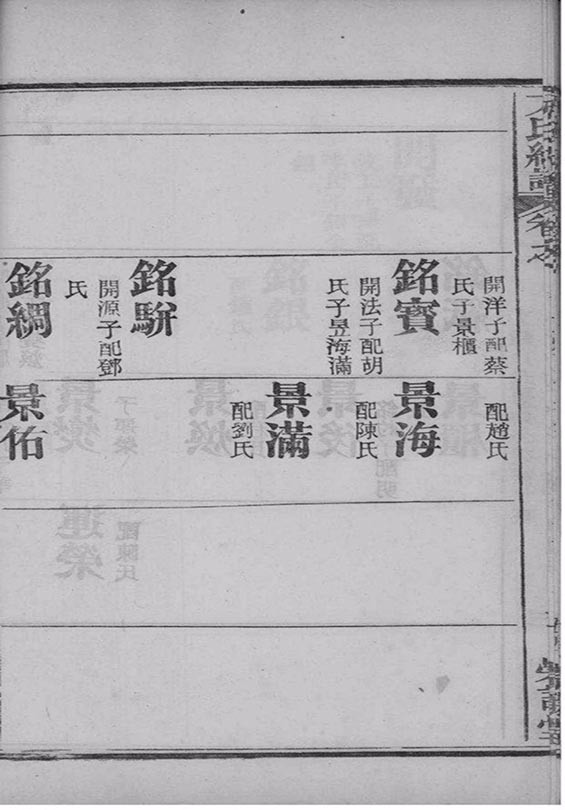 開洋子配蔡
氏子景櫃
銘賓
開法子配胡
氏子昱海滿
銘駢
開源子配鄧
氏
銘綢
配趙氏
景海
配陳氏
景滿
配劉氏
景佑